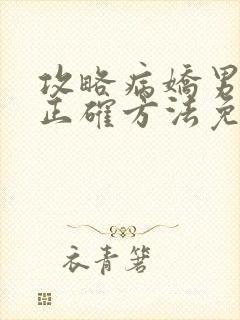 攻略病嬌男
正確方法免
衣青箬